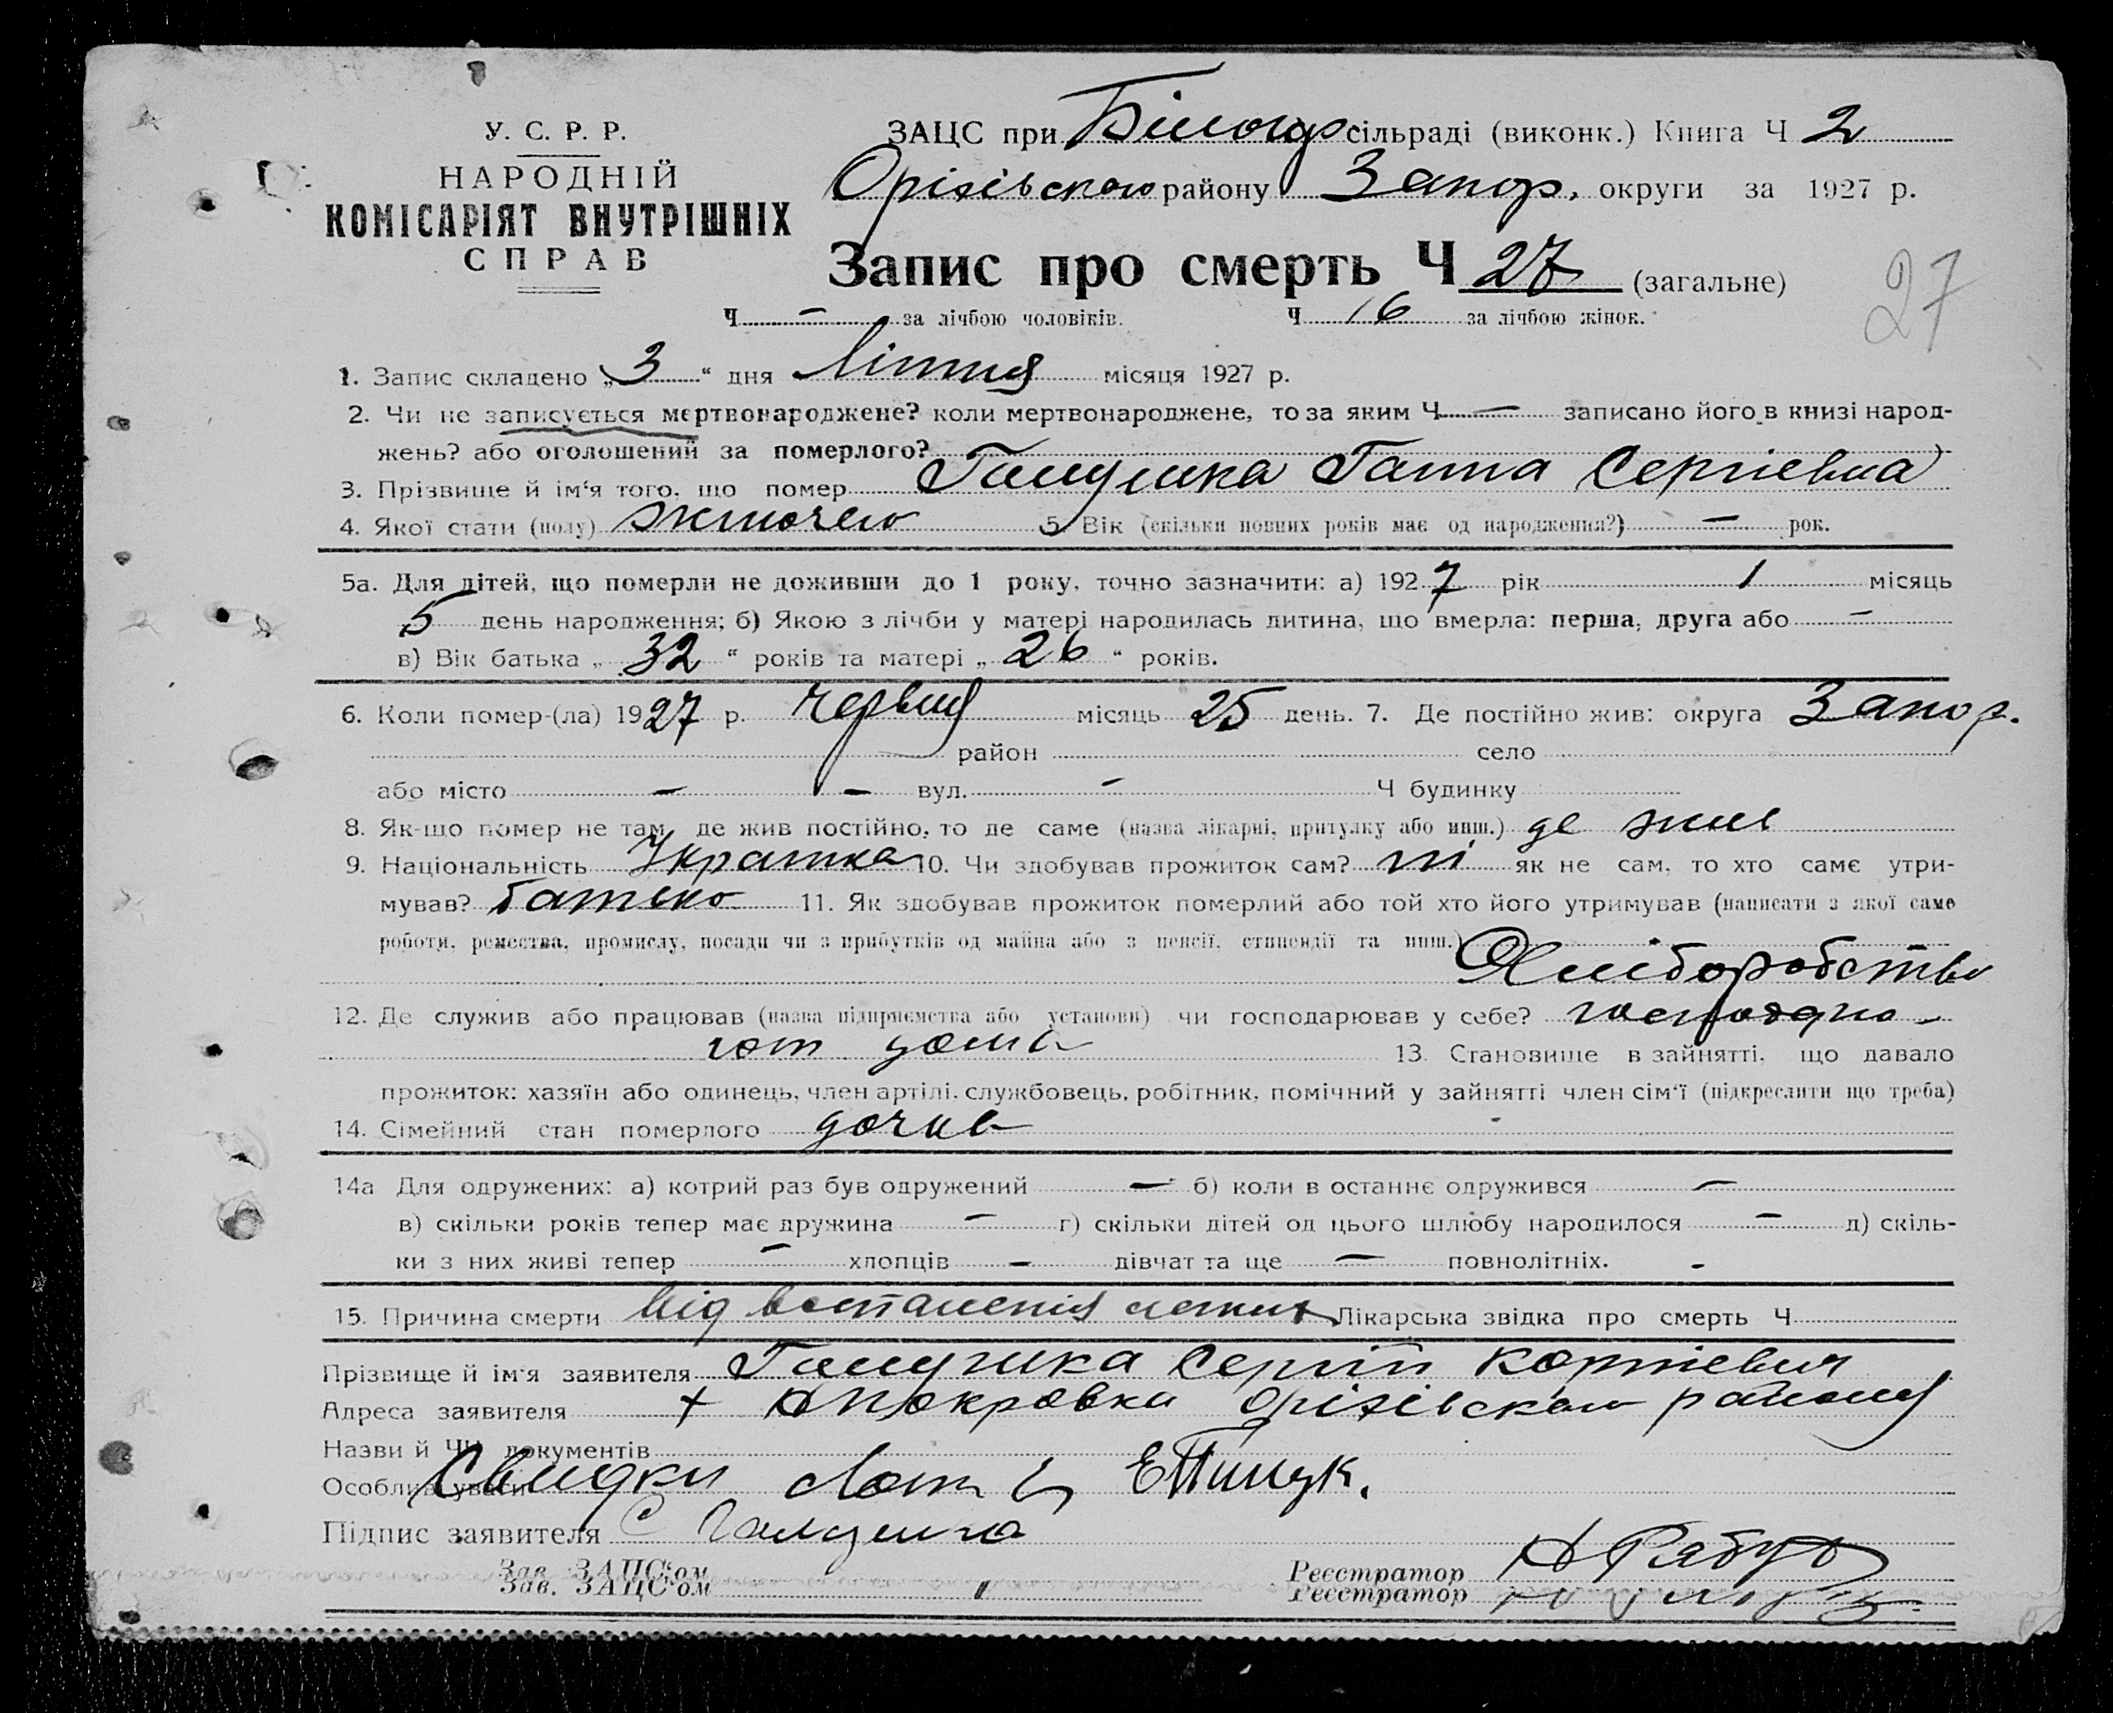 У. С. Р. Р.
НАРОДНІЙ
КОМІСАРІЯТ ВНУТРІШНІХ
СПРАВ
ЗАЦС при Білогір сільраді (виконк.) Книга Ч 2
Оріхівського району Запор. округи за 1927 р.
Запис про смерть Ч 27 (загальне)
27
Ч — за лічбою чоловіків. Ч 16 за лічбою жінок.
1. Запис складено „ 3 “ дня Липня місяця 1927 р.
2. Чи не записується мертвонароджене? коли мертвонароджене, то за яким Ч — записано його в книзі народ-
жень? або оголошений за померлого?
3. Прізвище й ім‘я того, що помер Галушка Ганна Сергіевна
4. Якої стати (полу) жіночего 5 Вік (скільки повних років має од народження?) — рок.
5а. Для дітей, що померли не доживши до 1 року, точно зазначити: а) 1927 рік 1 місяць
5 день народження; б) Якою з лічби у матері народилась дитина, що вмерла: перша, друга або —
в) Вік батька „ 32 “ років та матері „ 26 “ років.
6. Коли помер-(ла) 1927 р. червня місяць 25 день. 7. Де постійно жив: округа Запор.
район село
або місто — — вул. — Ч будинку
8. Як-що помер не там, де жив постійно, то де саме (назва лікарні, притулку або инш.) де жив
9. Національність Украінка 10. Чи здобував прожиток сам? ні як не сам, то хто саме утри-
мував? батько 11. Як здобував прожиток померлий або той хто його утримував (написати з якої саме
роботи, ремества, промислу, посади чи з прибутків од майна або з пенсії, стипендії та инш.)
Хліборобство
12. Де служив або працював (назва підприємства або установи) чи господарював у себе?
дома 13. Становище в зайнятті, що давало
прожиток: хазяїн або одинець, член артілі, службовець, робітник, помічний у зайнятті член сім‘ї (підкреслити що треба)
14. Сімейний стан померлого дочка
14а Для одружених: а) котрий раз був одружений — б) коли в останнє одружився —
в) скільки років тепер має дружина — г) скільки дітей од цього шлюбу народилося — д) скіль-
ки з них живі тепер — хлопців — дівчат та ще — повнолітніх.
15. Причина смерти від воспаленія легких Лікарська звідка про смерть Ч
Прізвище й ім‘я заявителя Галушка Сергій Корніевич
Адреса заявителя х Н Покровка Оріхівского району
Назви й ЧЧ документів
Особливі уваги Свидки
Підпис заявителя С Галушка
Зав. ЗАЦС‘ом Реєстратор
Зав. ЗАЦС‘ом Реєстратор